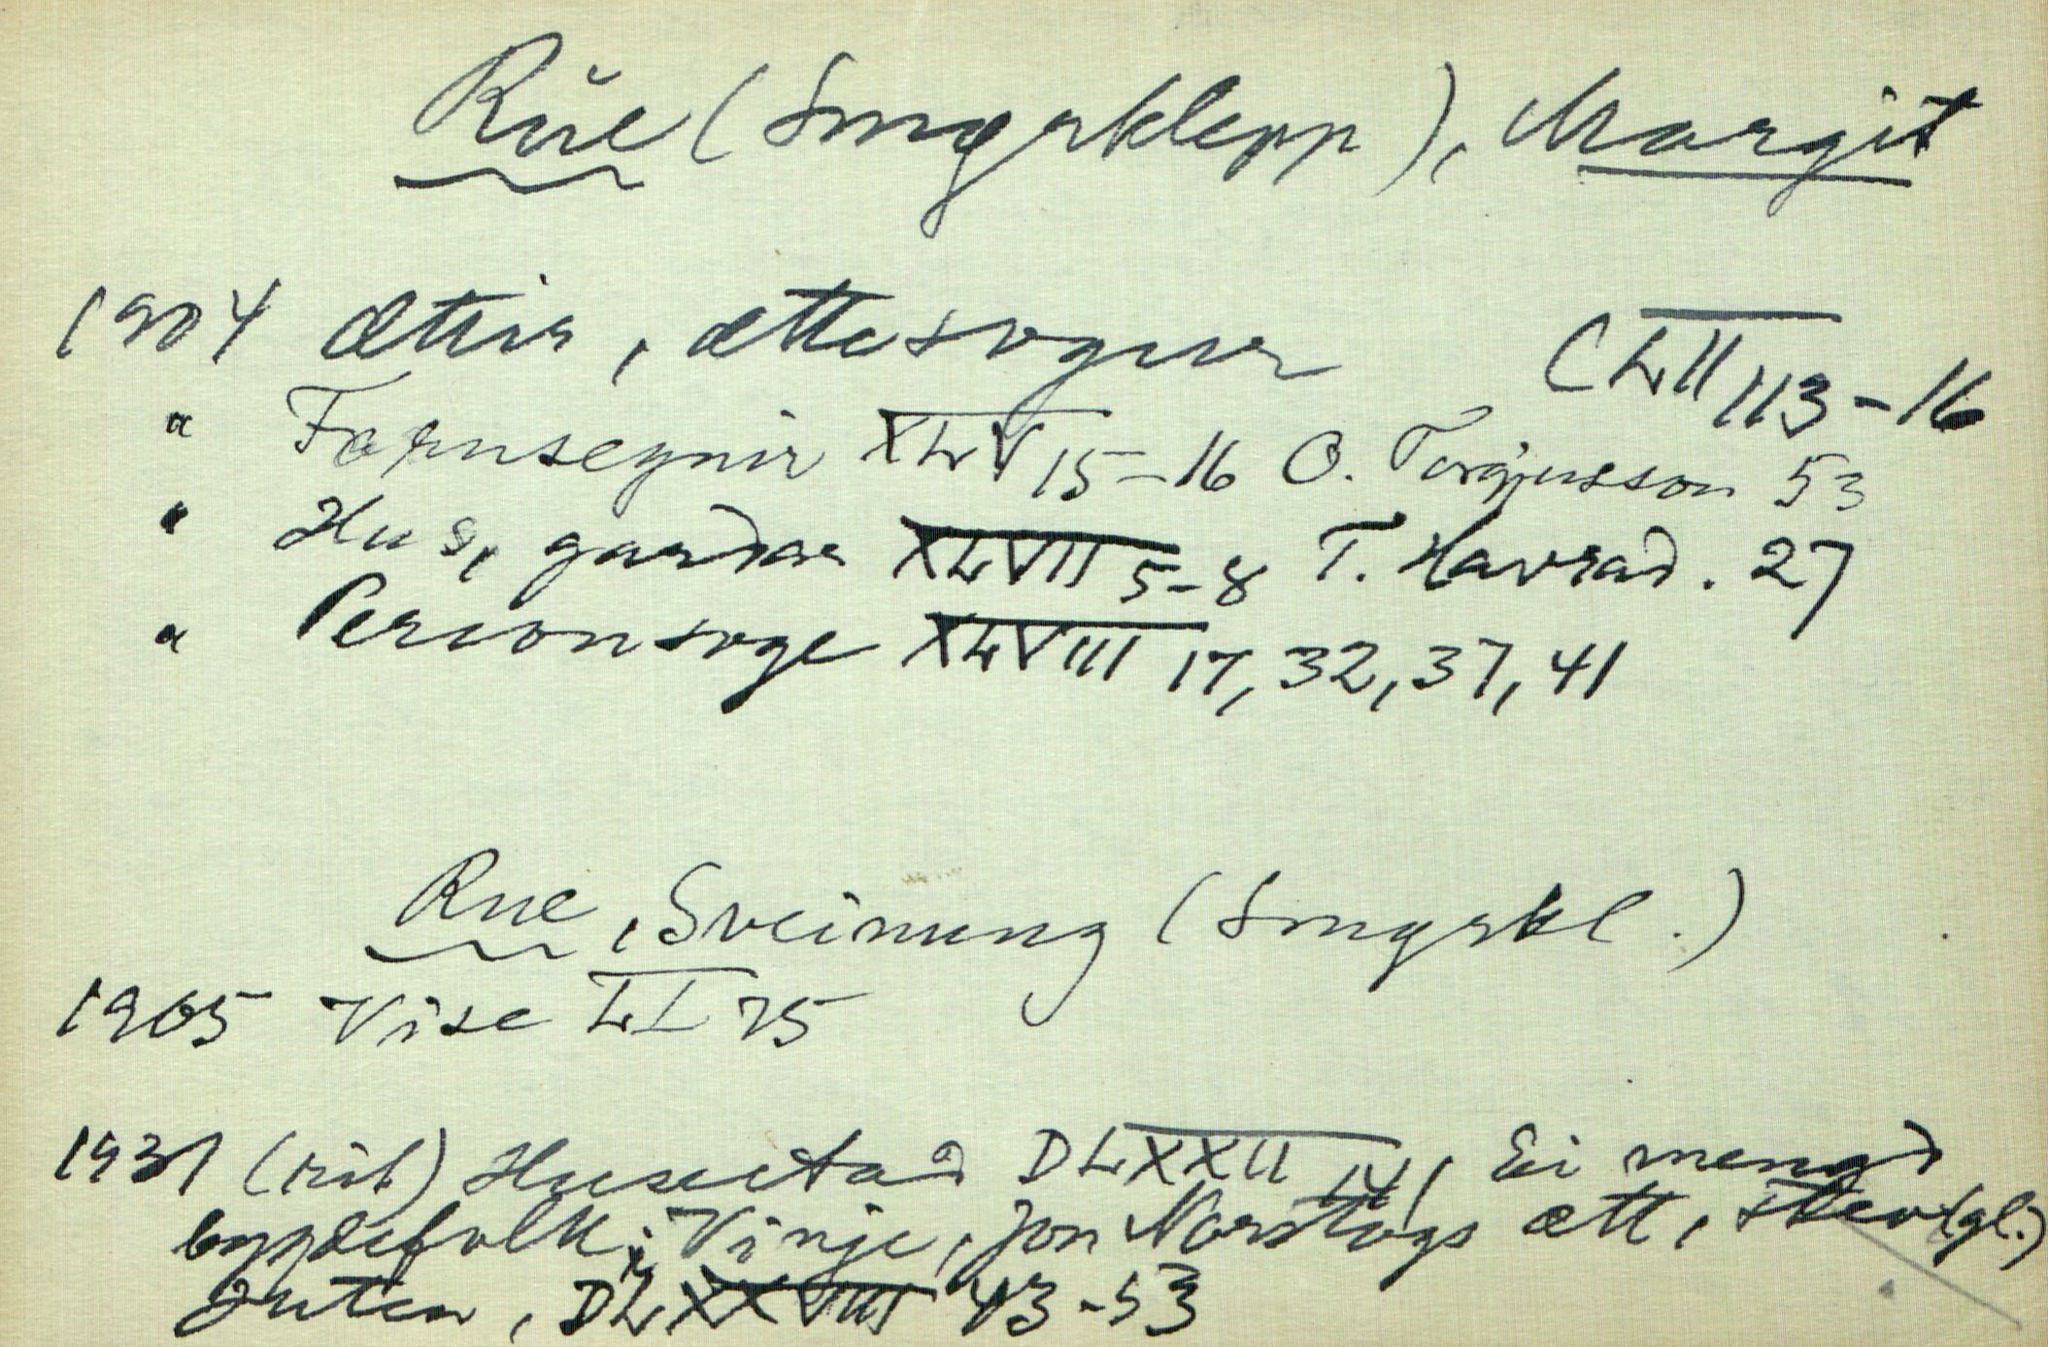 Rue (Smørklepp), Margit
1904 Ættir, ættesogur CLII 113-16
" Fornsegnir XLV 15-16 O. Torgjusson 53
" Hus, gardar XLVII 5-8 T. Havrad. 27
" Personsoge XLVIII 17, 32, 37, 41
Rue, Sveinung (Smørkl.)
1905 Vise LI 75
1931 Husestad DLXXII 141, Ei mengd
bygdefolk i Vinje, Jon Nordtogs ætt, stev (gl.)
Juten, DLXXVIII 43-53